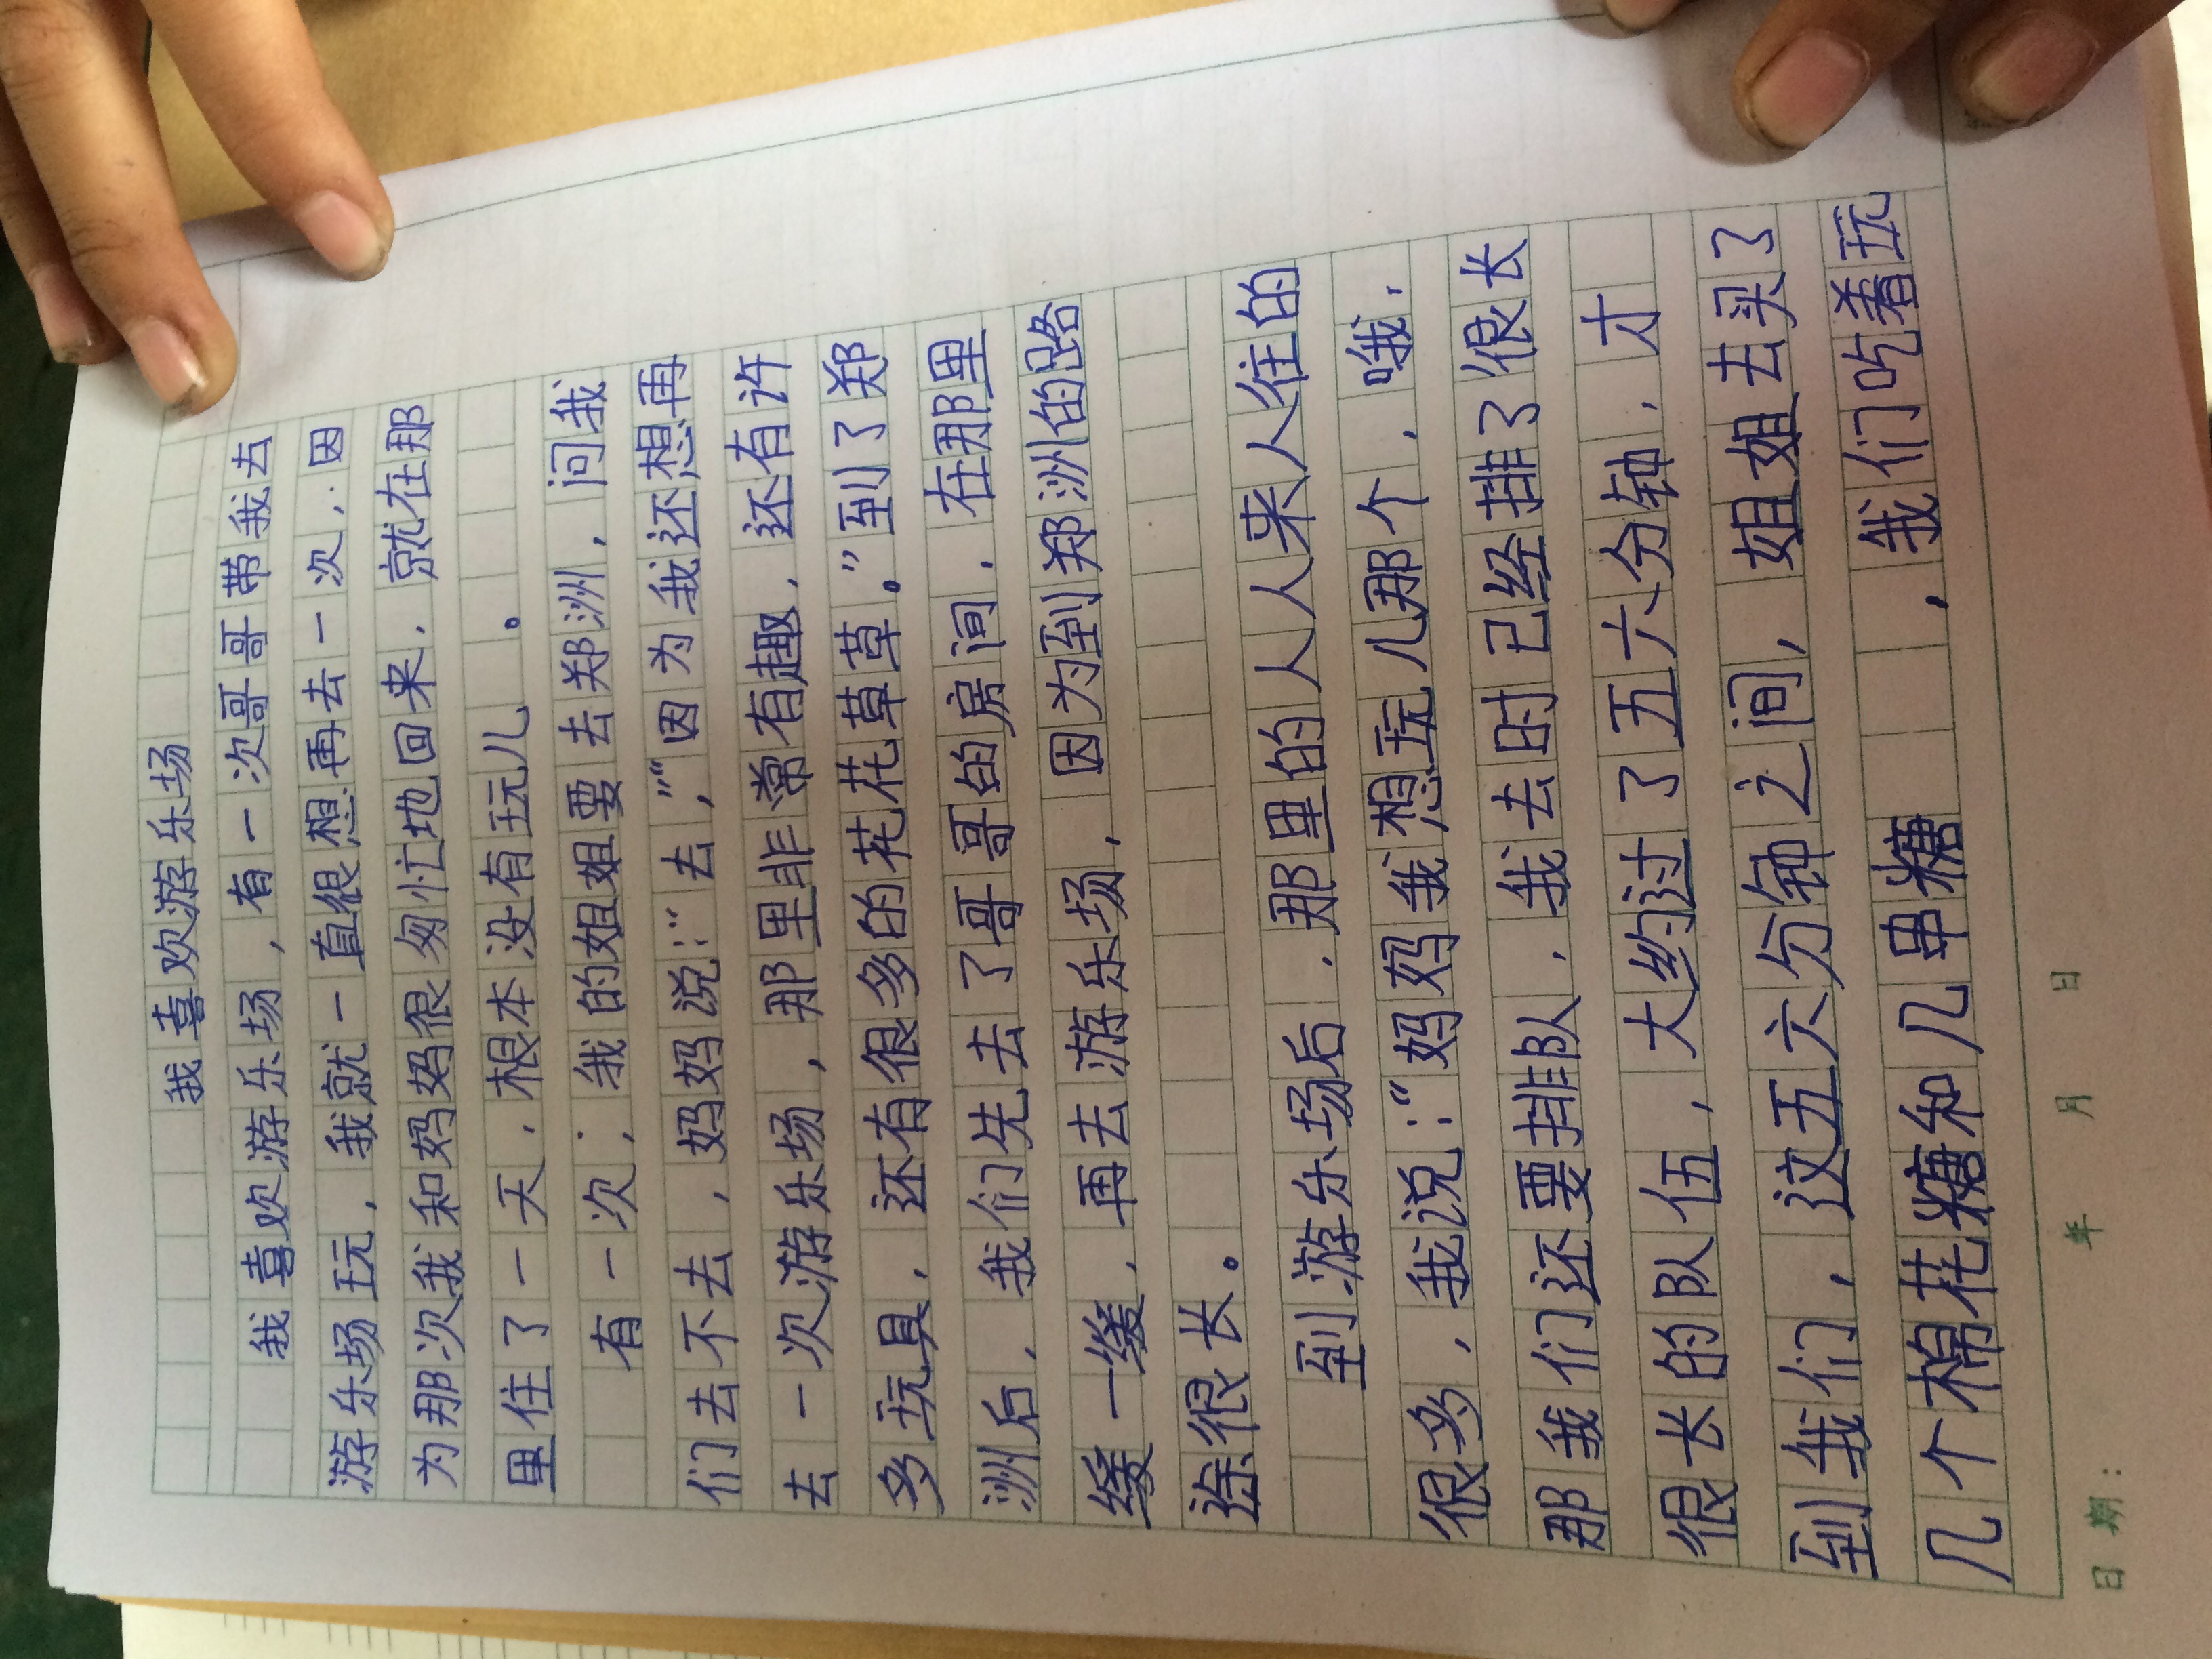 我喜欢游乐场
我喜欢游乐场，有一次哥哥带我去
游乐场玩，我就一直很想再去一次，因
为那次我和妈妈很匆忙地回来，就在那
里住了一天，根本没有玩儿。
有一次，我的姐姐要去郑洲，问我
们去不去，妈妈说：“去，”“因为我还想再
去一次游乐场，那里非常有趣，还有许
多玩具，还有很多的花花草草。”到了郑
洲后，我们先去了哥哥的房间，在那里
缓一缓，再去游乐场，因为到郑洲的路
途很长。
到游乐场后，那里的人人来人往的
很多，我说：“妈妈我想玩儿那个，哦，
那我们还要排队，我去时已经排了很长
很长的队伍，大约过了五六分钟，才
到我们，这五六分钟之间，姐姐去买了
几个棉花糖和几串糖，我们吃着玩
日期： 年 月 日